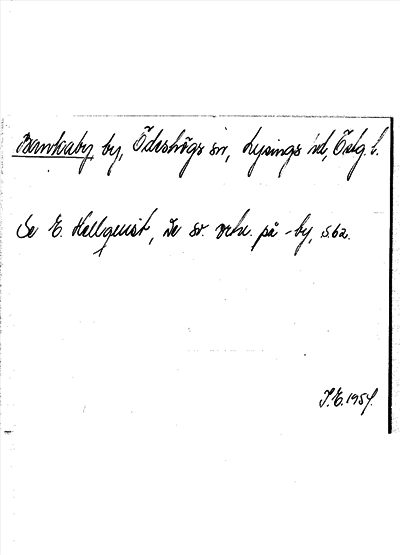 Bankaby by, Ödeshögs sn, Lysings hd, Östg. l.
Se E. Hellquist, De sv. ortn. på -by, s. 62.
J. E. 1954.